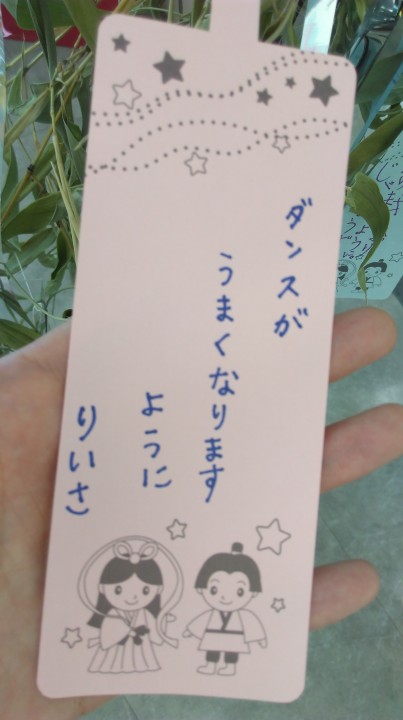 ダンスが
うまくなります
ように
りいさ